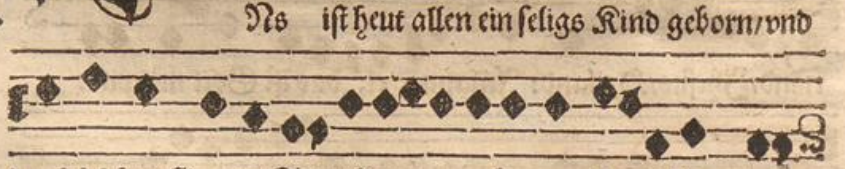 Ns ist heut allen ein seligs Kind geborn/vnd